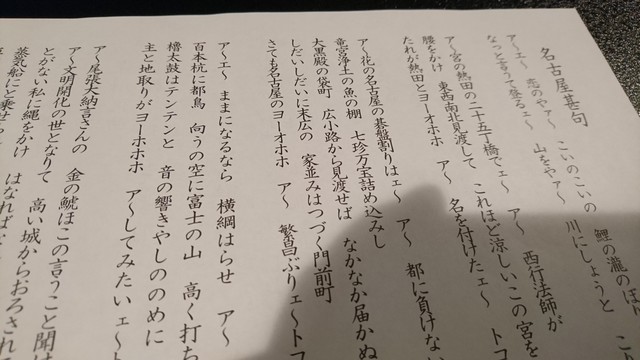 名古屋甚句
ア〜エ〜 恋のやァ〜 こいのこいの 鯉の瀧のぼ
なっと言うて登るェ〜 山をやァ〜 川にしょうと
ア〜宮の熱田の二十五丁橋でェ〜 ア〜 西行法師が
腰をかけ 東西南北見渡して これほど涼しいこの宮を
たれが熱田とヨーホホホ ア〜 名を付けたェ〜 ト
ア〜花の名古屋の碁盤割りはェ〜 ア〜 都に負けない
竜宮浄土の魚の棚 七珍万宝詰め込みし
大黒殿の袋町 広小路から見渡せば なかなか届かぬ
しだいしだいに末広の 家並みはつづく門前町
さても名古屋のヨーオホホ ア〜 繁昌ぶりェ〜トコ
ア〜エ〜 ままになるなら 横綱はらせ ア〜
百本杭に都鳥 向うの空に富士の山 高く打ち
櫓太鼓はテンテンと 音の響きやしののめに
主と地取りがヨーホホホ ア〜してみたいェ〜ト
ア〜尾張大納言さんの 金の鯱ほこの言うこと聞け
ア〜文明開化の世となりて 高い城からおろされ
とがない私に縄をかけ はなれ
蒸気船にと乗せら